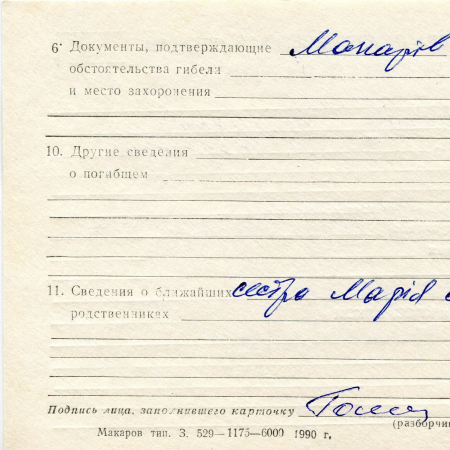 6· Документы, подтверждающие Макарів
обстоятельства гибели
и место захоронения
10. Другие сведения
о погибшем
11. Сведения о ближайших сестра Марія
родственниках
Подпись лица, заполнившего карточку
(разборчи
Макаров тип. З. 529—1175—6000 1990 г.